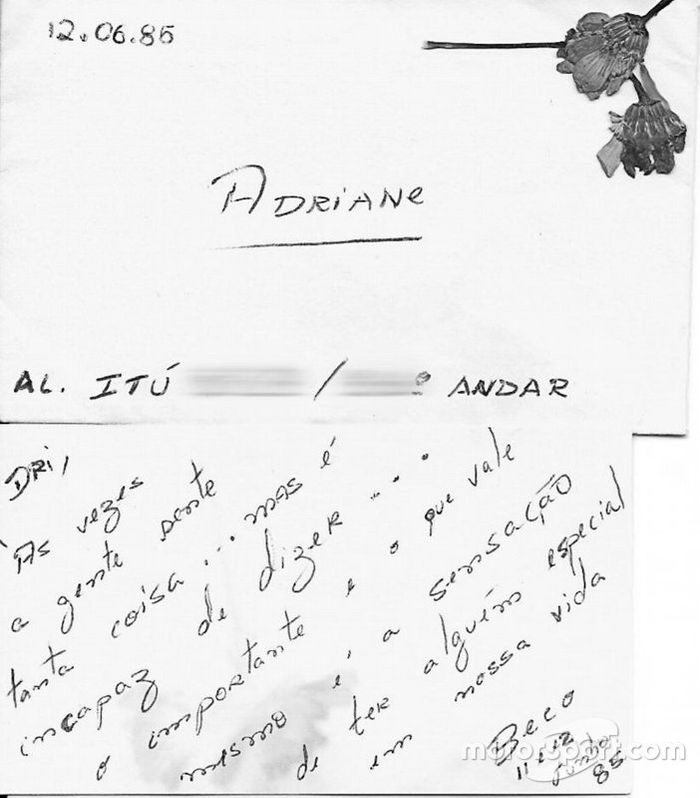 12.06.85
ADRiANe
AL. ITÚ / º ANDAR
DRi,
Às vezes
a gente sente
tanta coisa... mas é
incapaz de dizer...
o importante e o que vale
mesmo é, a sensação
de ter alguém especial
em nossa vida
Beco
11 e 12
Junho
85
motorsport.com